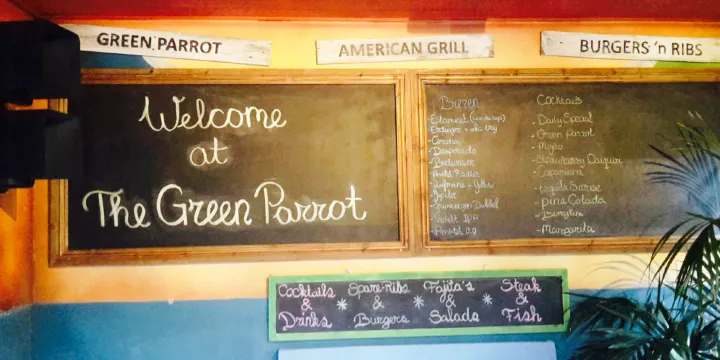 GREEN PARROT
AMERICAN GRILL
BURGERS 'n RIBS
Welcome
at
The Green Parrot
Bizzen
Cocktails
- Corona
- Desperado
- Amstel Radler
- Amstel 0.0
- Daily Special
- Green Parrot
- Mojito
- Strawberry Daiquiri
- Caipirinha
- Tequila Sunrise
- pina Colada
- Margarita
Cocktails & Drinks
*
Spare-Ribs & Burgers
*
Fajita's & Salads
*
Steak & Fish